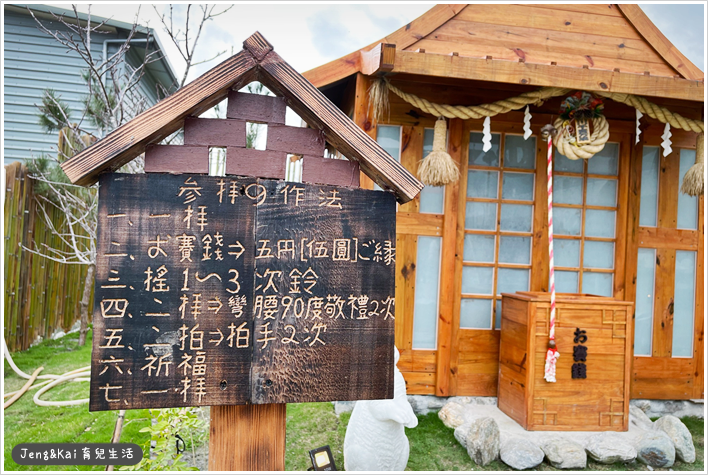 參拜の作法
一、一拜
二、お賽錢⇒五円[伍圓]ご緣
三、搖1～3次鈴
四、二拜⇒彎腰90度敬禮2次
五、二拍⇒拍手2次
六、祈福
七、一拜
お賽錢
Jeng&Kai 育兒生活